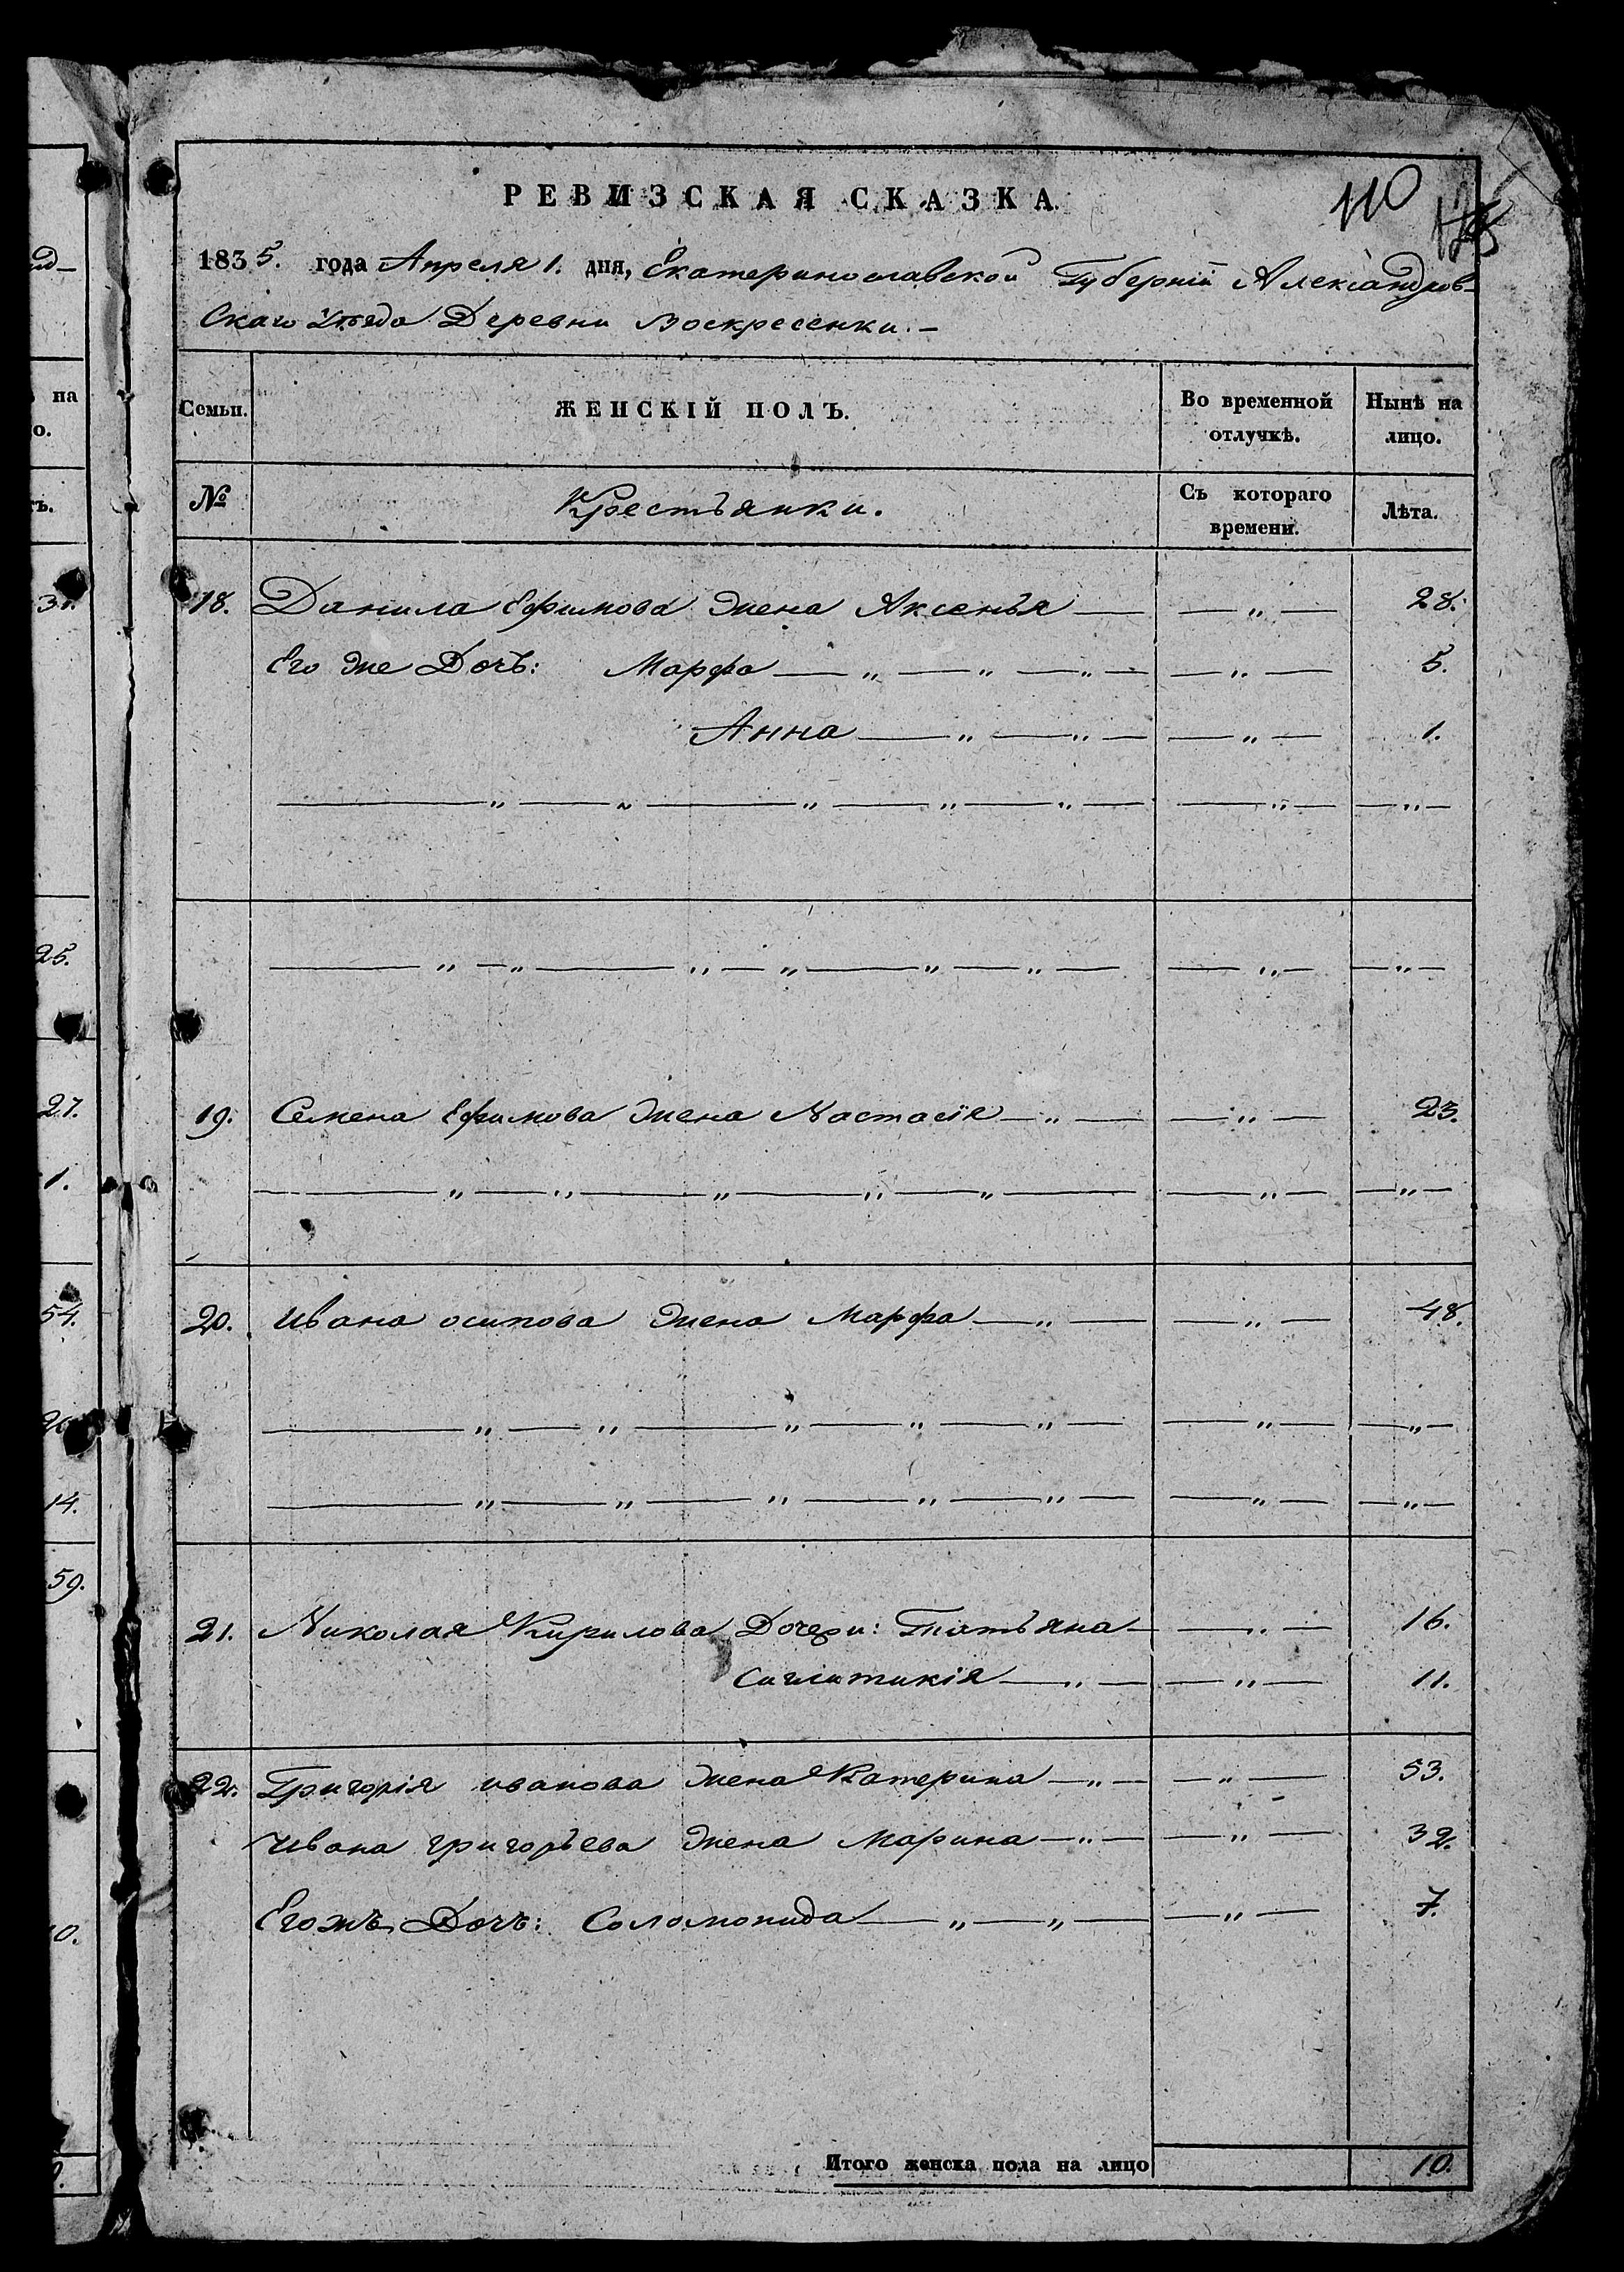 РЕВИЗСКАЯ СКАЗКА
110
1835. года Апреля 1. дня, Екатеринославской Губерніи Александров-
скаго Уѣзда Деревни Воскресенки. –
на
о.
ъ.
Семьи. ЖЕНСКІЙ ПОЛЪ. Во временной отлучкѣ. Нынѣ на лицо.
№ Крестьянки. Съ котораго времени. Лѣта.
18. Данила Ефимова жена Аксенья — — „ — 28.
Его же Дочь: Марфа — „ — „ — „ — — „ — 5.
Анна — „ — „ — — „ — 1.
— „ — „ — „ — „ — „ — — „ — — „ —
25.
— „ — „ — „ — „ — „ — „ — — „ — — „ —
27.
19. Семена Ефимова жена Настасія — „ — — „ — 23.
1.
— „ — „ — „ — „ — „ — — „ — — „ —
54.
20. Ивана осипова жена Марфа — „ — — „ — 48.
— „ — „ — „ — „ — „ — — „ — — „ —
14.
— „ — „ — „ — „ — „ — — „ — — „ —
59.
21. Николая Кирилова Дочери: Татьяна — — „ — 16.
Сиглитикія — „ — — „ — 11.
22. Григорія иванова жена Катерина — „ — — „ — 53.
Ивана григорьева жена Марина — „ — — „ — 32.
Егожъ Дочь: Соломонида — „ — „ — — „ — 7.
0.
Итого женска пола на лицо 10.